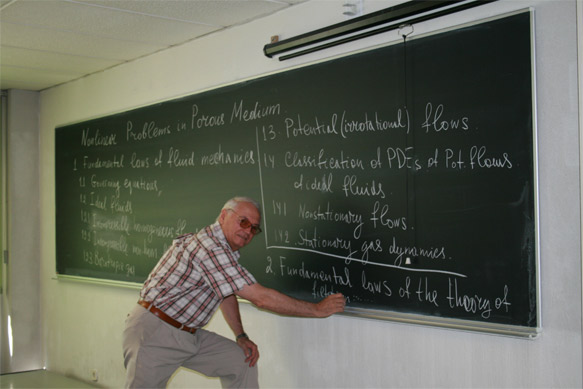 Nonlinear Problems in Porous Medium
1 Fundamental laws of fluid mechanics
1.1 Governing equations,
1.2 Ideal fluids
1.2.1 Incompressible homogeneous
1.2.2 Incompressible
1.2.3 Barotropic gas
1.3. Potential (irrotational) flows.
1.4 Classification of PDEs of Pot. flows
of ideal fluids.
1.4.1 Nonstationary flows.
1.4.2. Stationary gas dynamics.
2. Fundamental laws of the theory of
filtration